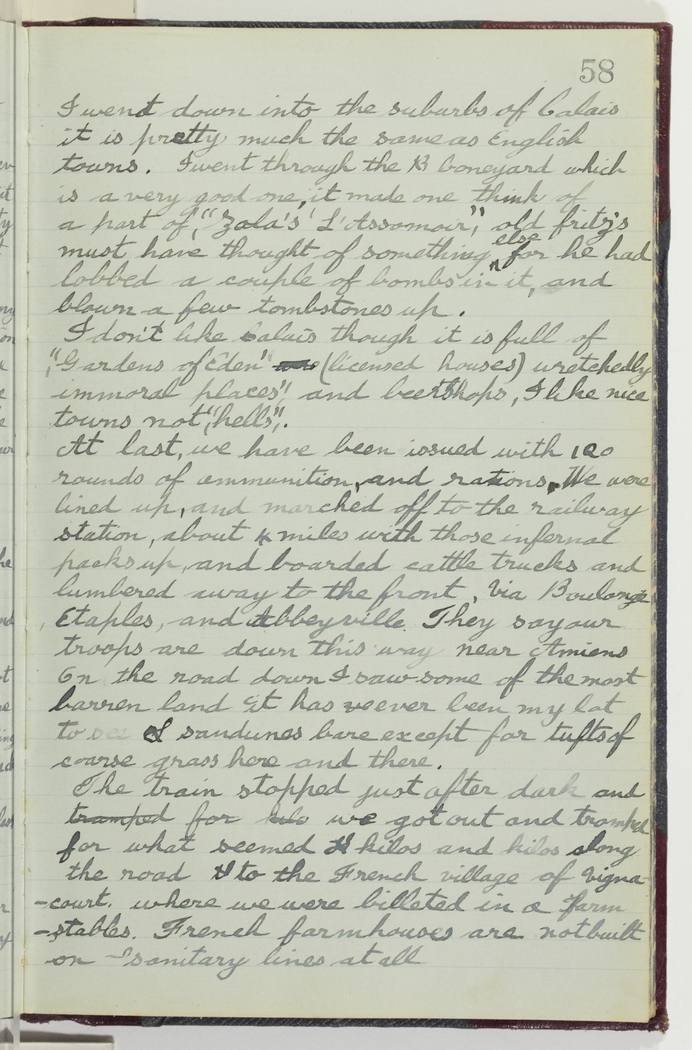 58
I went down into the suburbs of Calais
it is pretty much the same as English
towns. I went through the boneyard which
is a very good one, it made one think of
a part of, "Zola's' L'Assomoir", old fritz's
must have thought of something else for he had
lobbed a couple of bombs in it, and
blown a few tombstones up.
I don't like Calais though it is full of
"Gardens of Eden" (licensed houses) wretchedly
immoral places", and beershops, I like nice
towns not "hells".
At last, we have been issued with 120
rounds of ammunition, and rations. We were
lined up, and marched off to the railway
station, about 4 miles with those infernal
packs up, and boarded cattle trucks and
lumbered away to the front, Via Boulonge
, Etaples, and Abbeyville. They say our
troops are down this way near Amiens
On the road down I saw some of the most
barren land it has ever been my lot
to see sandunes bare except for tufts of
coarse grass here and there.
The train stopped just after dark and
tramped for kilo we got out and tramped
for what seemed kilos and kilos along
the road to the French village of Vigna-
-court. where we were billeted in a farm
-stables. French farmhouses are not built
on sanitary lines at all